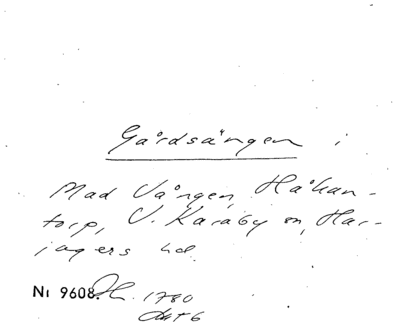 Gårdsängen i
Mad Vången, Håkan-
torp, V. Karaby sn, Har-
jagers hd.
Nı 9608. Lh. 1780
akt 6